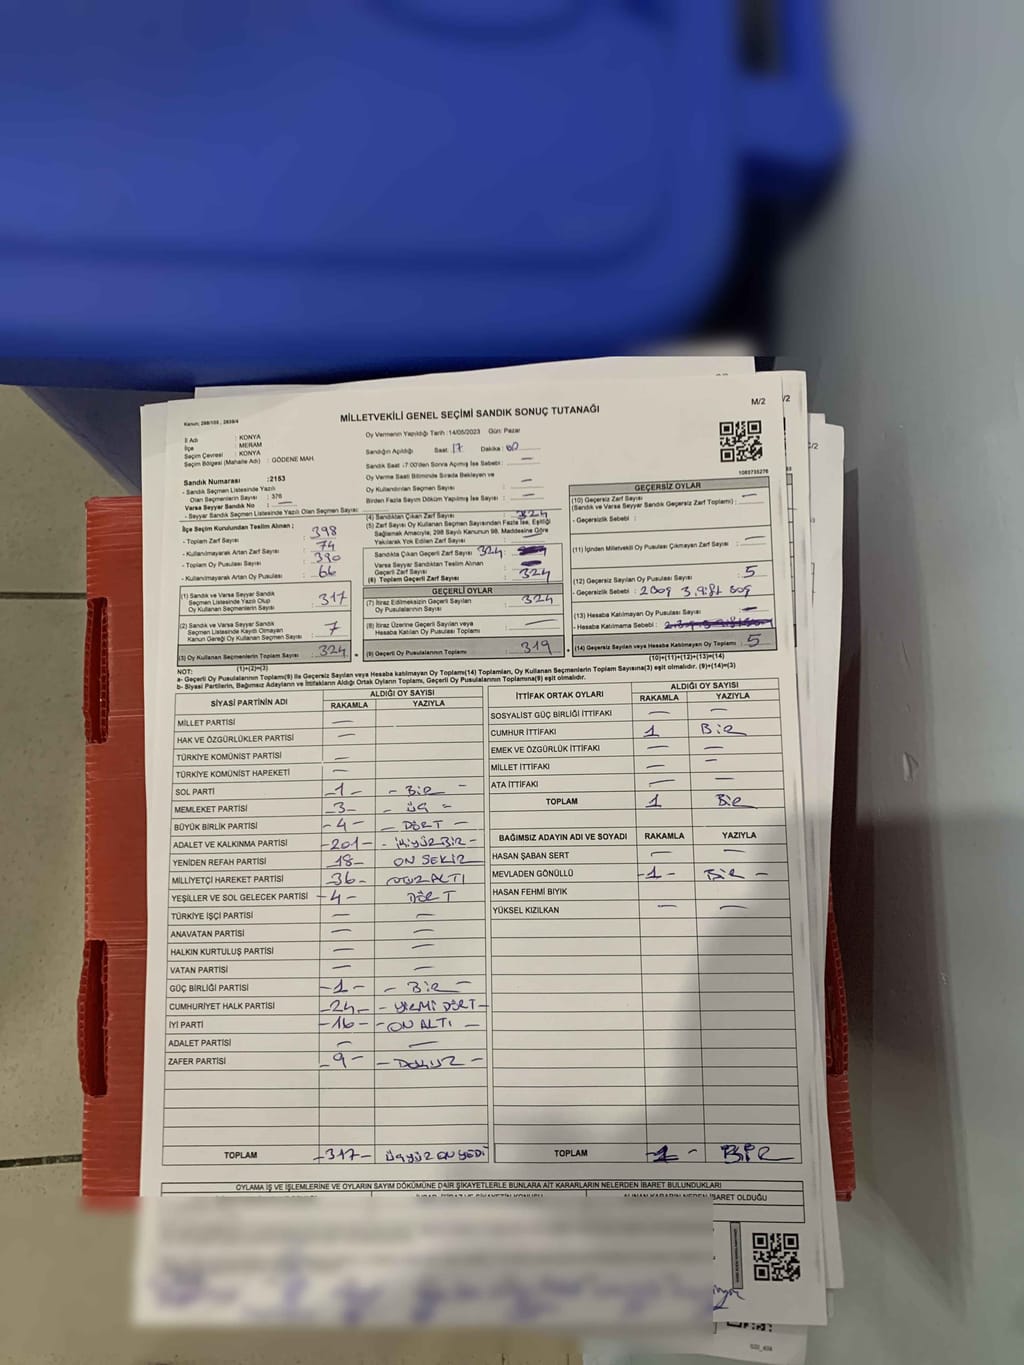 M/2
Kanun: 298/105 , 2839/4
MİLLETVEKİLİ GENEL SEÇİMİ SANDIK SONUÇ TUTANAĞI
İl Adı : KONYA
İlçe : MERAM
Seçim Çevresi : KONYA
Seçim Bölgesi (Mahalle Adı) : GÖDENE MAH.
Sandık Numarası :2153
- Sandık Seçmen Listesinde Yazılı
Olan Seçmenlerin Sayısı : 376
Varsa Seyyar Sandık No : —
- Seyyar Sandık Seçmen Listesinde Yazılı Olan Seçmen Sayısı:
İlçe Seçim Kurulundan Teslim Alınan ;
- Toplam Zarf Sayısı : 398
- Kullanılmayarak Artan Zarf Sayısı : 74
- Toplam Oy Pusulası Sayısı : 390
- Kullanılmayarak Artan Oy Pusulası : 66
(1) Sandık ve Varsa Seyyar Sandık
Seçmen Listesinde Yazılı Olup
Oy Kullanan Seçmenlerin Sayısı : 317
(2) Sandık ve Varsa Seyyar Sandık
Seçmen Listesinde Kayıtlı Olmayan
Kanun Gereği Oy Kullanan Seçmen Sayısı : 7
(3) Oy Kullanan Seçmenlerin Toplam Sayısı : 324
(1)+(2)=(3)
Oy Vermenin Yapıldığı Tarih : 14/05/2023 Gün: Pazar
Sandığın Açıldığı Saat : 17 Dakika : 00
Sandık Saat 17:00'den Sonra Açılmış İse Sebebi : —
Oy Verme Saati Bitiminde Sırada Bekleyen ve
Oy Kullandırılan Seçmen Sayısı : —
Birden Fazla Sayım Döküm Yapılmış İse Sayısı : —
(4) Sandıktan Çıkan Zarf Sayısı : 324
(5) Zarf Sayısı Oy Kullanan Seçmen Sayısından Fazla İse, Eşitliği
Sağlamak Amacıyla, 298 Sayılı Kanunun 98. Maddesine Göre
Yakılarak Yok Edilen Zarf Sayısı : —
Sandıkta Çıkan Geçerli Zarf Sayısı 324
Varsa Seyyar Sandıktan Teslim Alınan
Geçerli Zarf Sayısı
(6) Toplam Geçerli Zarf Sayısı : 324
GEÇERLİ OYLAR
(7) İtiraz Edilmeksizin Geçerli Sayılan
Oy Pusulalarının Sayısı : 324
(8) İtiraz Üzerine Geçerli Sayılan veya
Hesaba Katılan Oy Pusulası Toplamı : —
(9) Geçerli Oy Pusulalarının Toplamı : 319
1083735276
GEÇERSİZ OYLAR
(10) Geçersiz Zarf Sayısı : —
(Sandık ve Varsa Seyyar Sandık Geçersiz Zarf Toplamı)
- Geçersizlik Sebebi :
(11) İçinden Milletvekili Oy Pusulası Çıkmayan Zarf Sayısı : —
(12) Geçersiz Sayılan Oy Pusulası Sayısı : 5
- Geçersizlik Sebebi : 2 boş 3
(13) Hesaba Katılmayan Oy Pusulası Sayısı :
- Hesaba Katılmama Sebebi :
(14) Geçersiz Sayılan veya Hesaba Katılmayan Oy Toplamı : 5
(10)+(11)+(12)+(13)=(14)
NOT:
a- Geçerli Oy Pusulalarının Toplamı(9) ile Geçersiz Sayılan veya Hesaba katılmayan Oy Toplamı(14) Toplamları, Oy Kullanan Seçmenlerin Toplam Sayısına(3) eşit olmalıdır. (9)+(14)=(3)
b- Siyasi Partilerin, Bağımsız Adayların ve İttifakların Aldığı Ortak Oyların Toplamı, Geçerli Oy Pusulalarının Toplamına(9) eşit olmalıdır.
SİYASİ PARTİNİN ADI ALDIĞI OY SAYISI
RAKAMLA YAZIYLA
MİLLET PARTİSİ —
HAK VE ÖZGÜRLÜKLER PARTİSİ —
TÜRKİYE KOMÜNİST PARTİSİ —
TÜRKİYE KOMÜNİST HAREKETİ —
SOL PARTİ -1- - BİR -
MEMLEKET PARTİSİ -3- - ÜÇ -
BÜYÜK BİRLİK PARTİSİ -4- - DÖRT -
ADALET VE KALKINMA PARTİSİ -201- - İKİYÜZBİR -
YENİDEN REFAH PARTİSİ 18- ON SEKİZ
MİLLİYETÇİ HAREKET PARTİSİ 36- OTUZ ALTI
YEŞİLLER VE SOL GELECEK PARTİSİ -4- DÖRT
TÜRKİYE İŞÇİ PARTİSİ — —
ANAVATAN PARTİSİ — —
HALKIN KURTULUŞ PARTİSİ — —
VATAN PARTİSİ — —
GÜÇ BİRLİĞİ PARTİSİ -1- - BİR -
CUMHURİYET HALK PARTİSİ -24- - YİRMİ DÖRT -
İYİ PARTİ -16- - ON ALTI -
ADALET PARTİSİ — —
ZAFER PARTİSİ -9- - DOKUZ -
TOPLAM -317- ÜÇYÜZ ON YEDİ
İTTİFAK ORTAK OYLARI ALDIĞI OY SAYISI
RAKAMLA YAZIYLA
SOSYALİST GÜÇ BİRLİĞİ İTTİFAKI — —
CUMHUR İTTİFAKI 1 BİR
EMEK VE ÖZGÜRLÜK İTTİFAKI — —
MİLLET İTTİFAKI — —
ATA İTTİFAKI — —
TOPLAM 1 BİR
BAĞIMSIZ ADAYIN ADI VE SOYADI RAKAMLA YAZIYLA
HASAN ŞABAN SERT — —
MEVLADEN GÖNÜLLÜ -1- BİR -
HASAN FEHMİ BIYIK
YÜKSEL KIZILKAN — —
TOPLAM -1- BİR
OYLAMA İŞ VE İŞLEMLERİNE VE OYLARIN SAYIM DÖKÜMÜNE DAİR ŞİKAYETLERLE BUNLARA AİT KARARLARIN NELERDEN İBARET BULUNDUKLARI